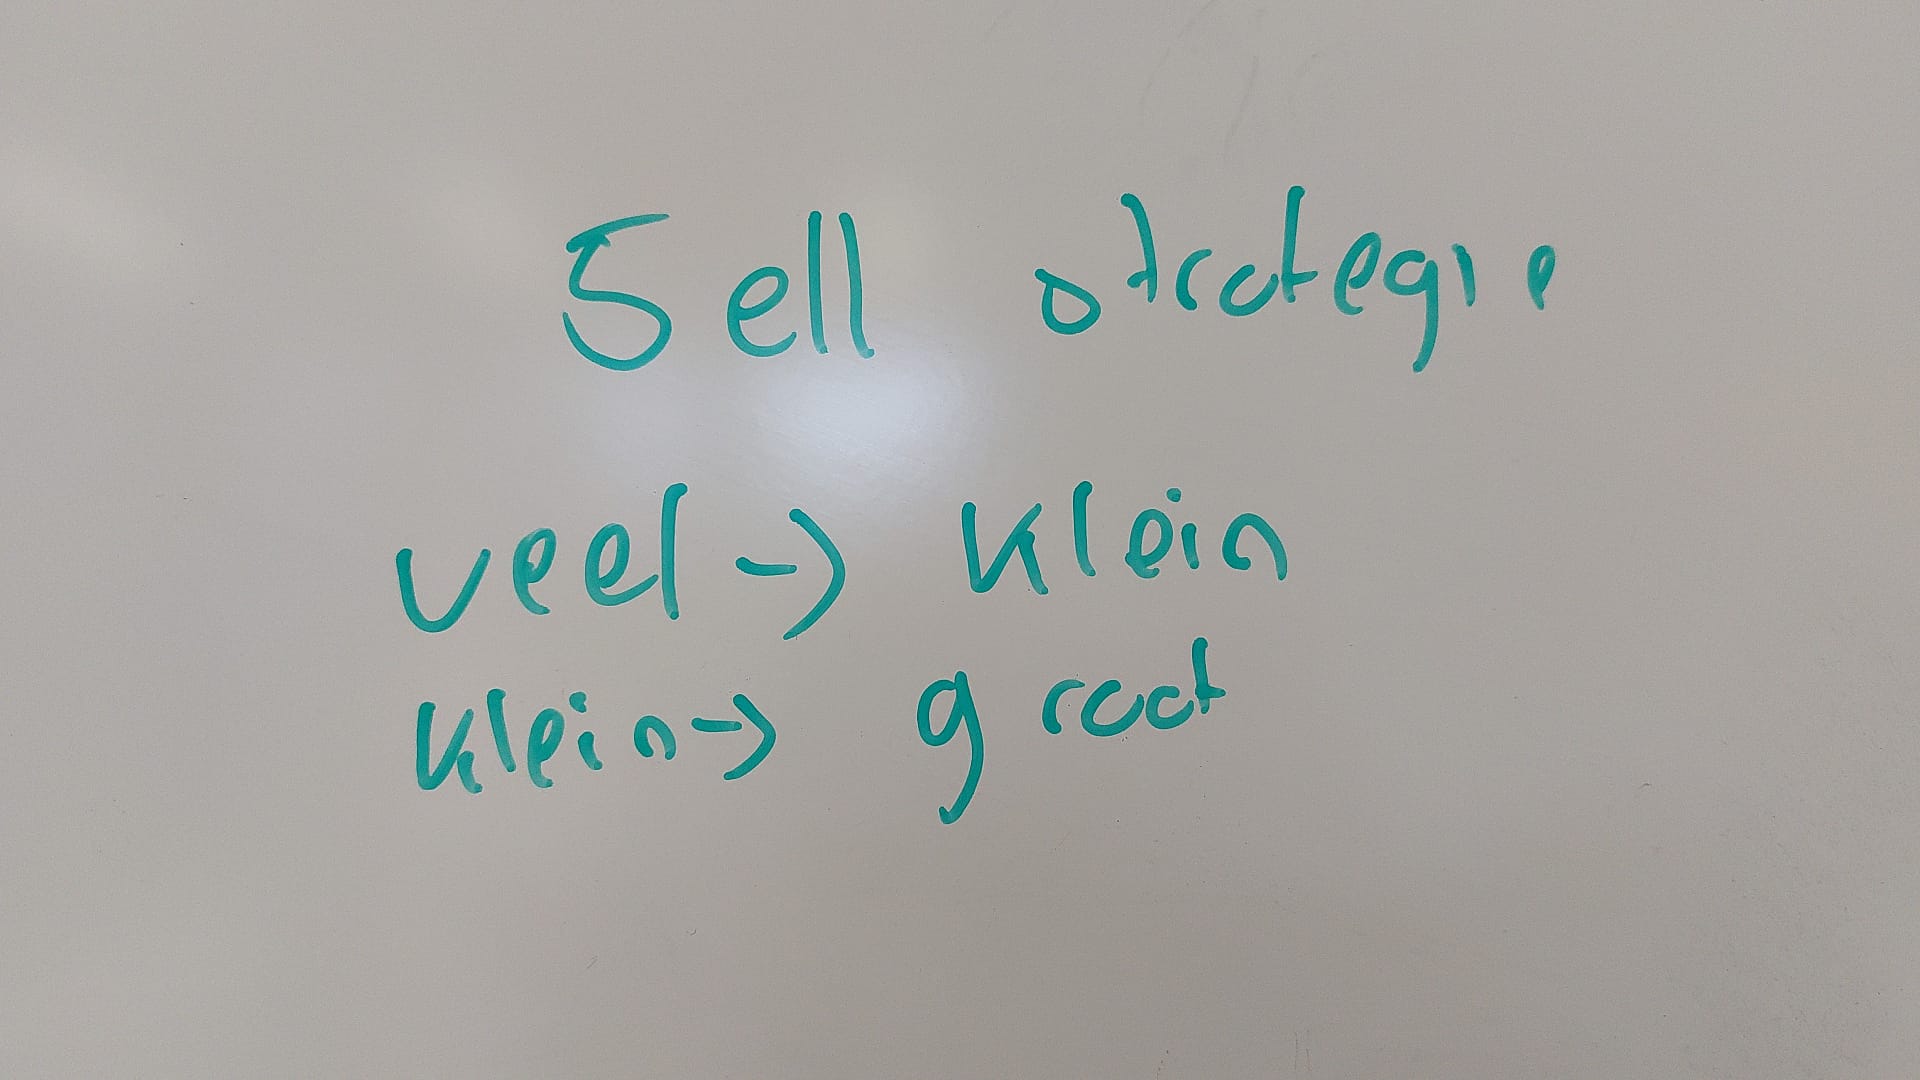 Sell strategie
veel -> klein
klein -> groot